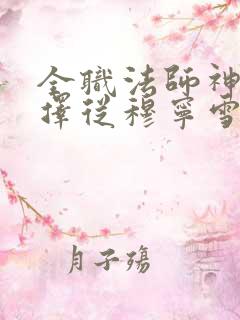 全職法師神
擇從穆寧雪
月子殤